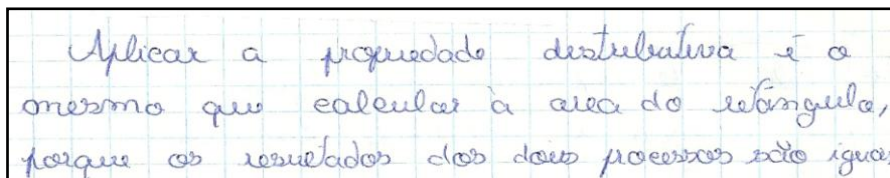 Aplicar a propriedade destrubutiva é o
mesmo que calcular à area do retângulo,
porque os resultados dos dois processos são iguais